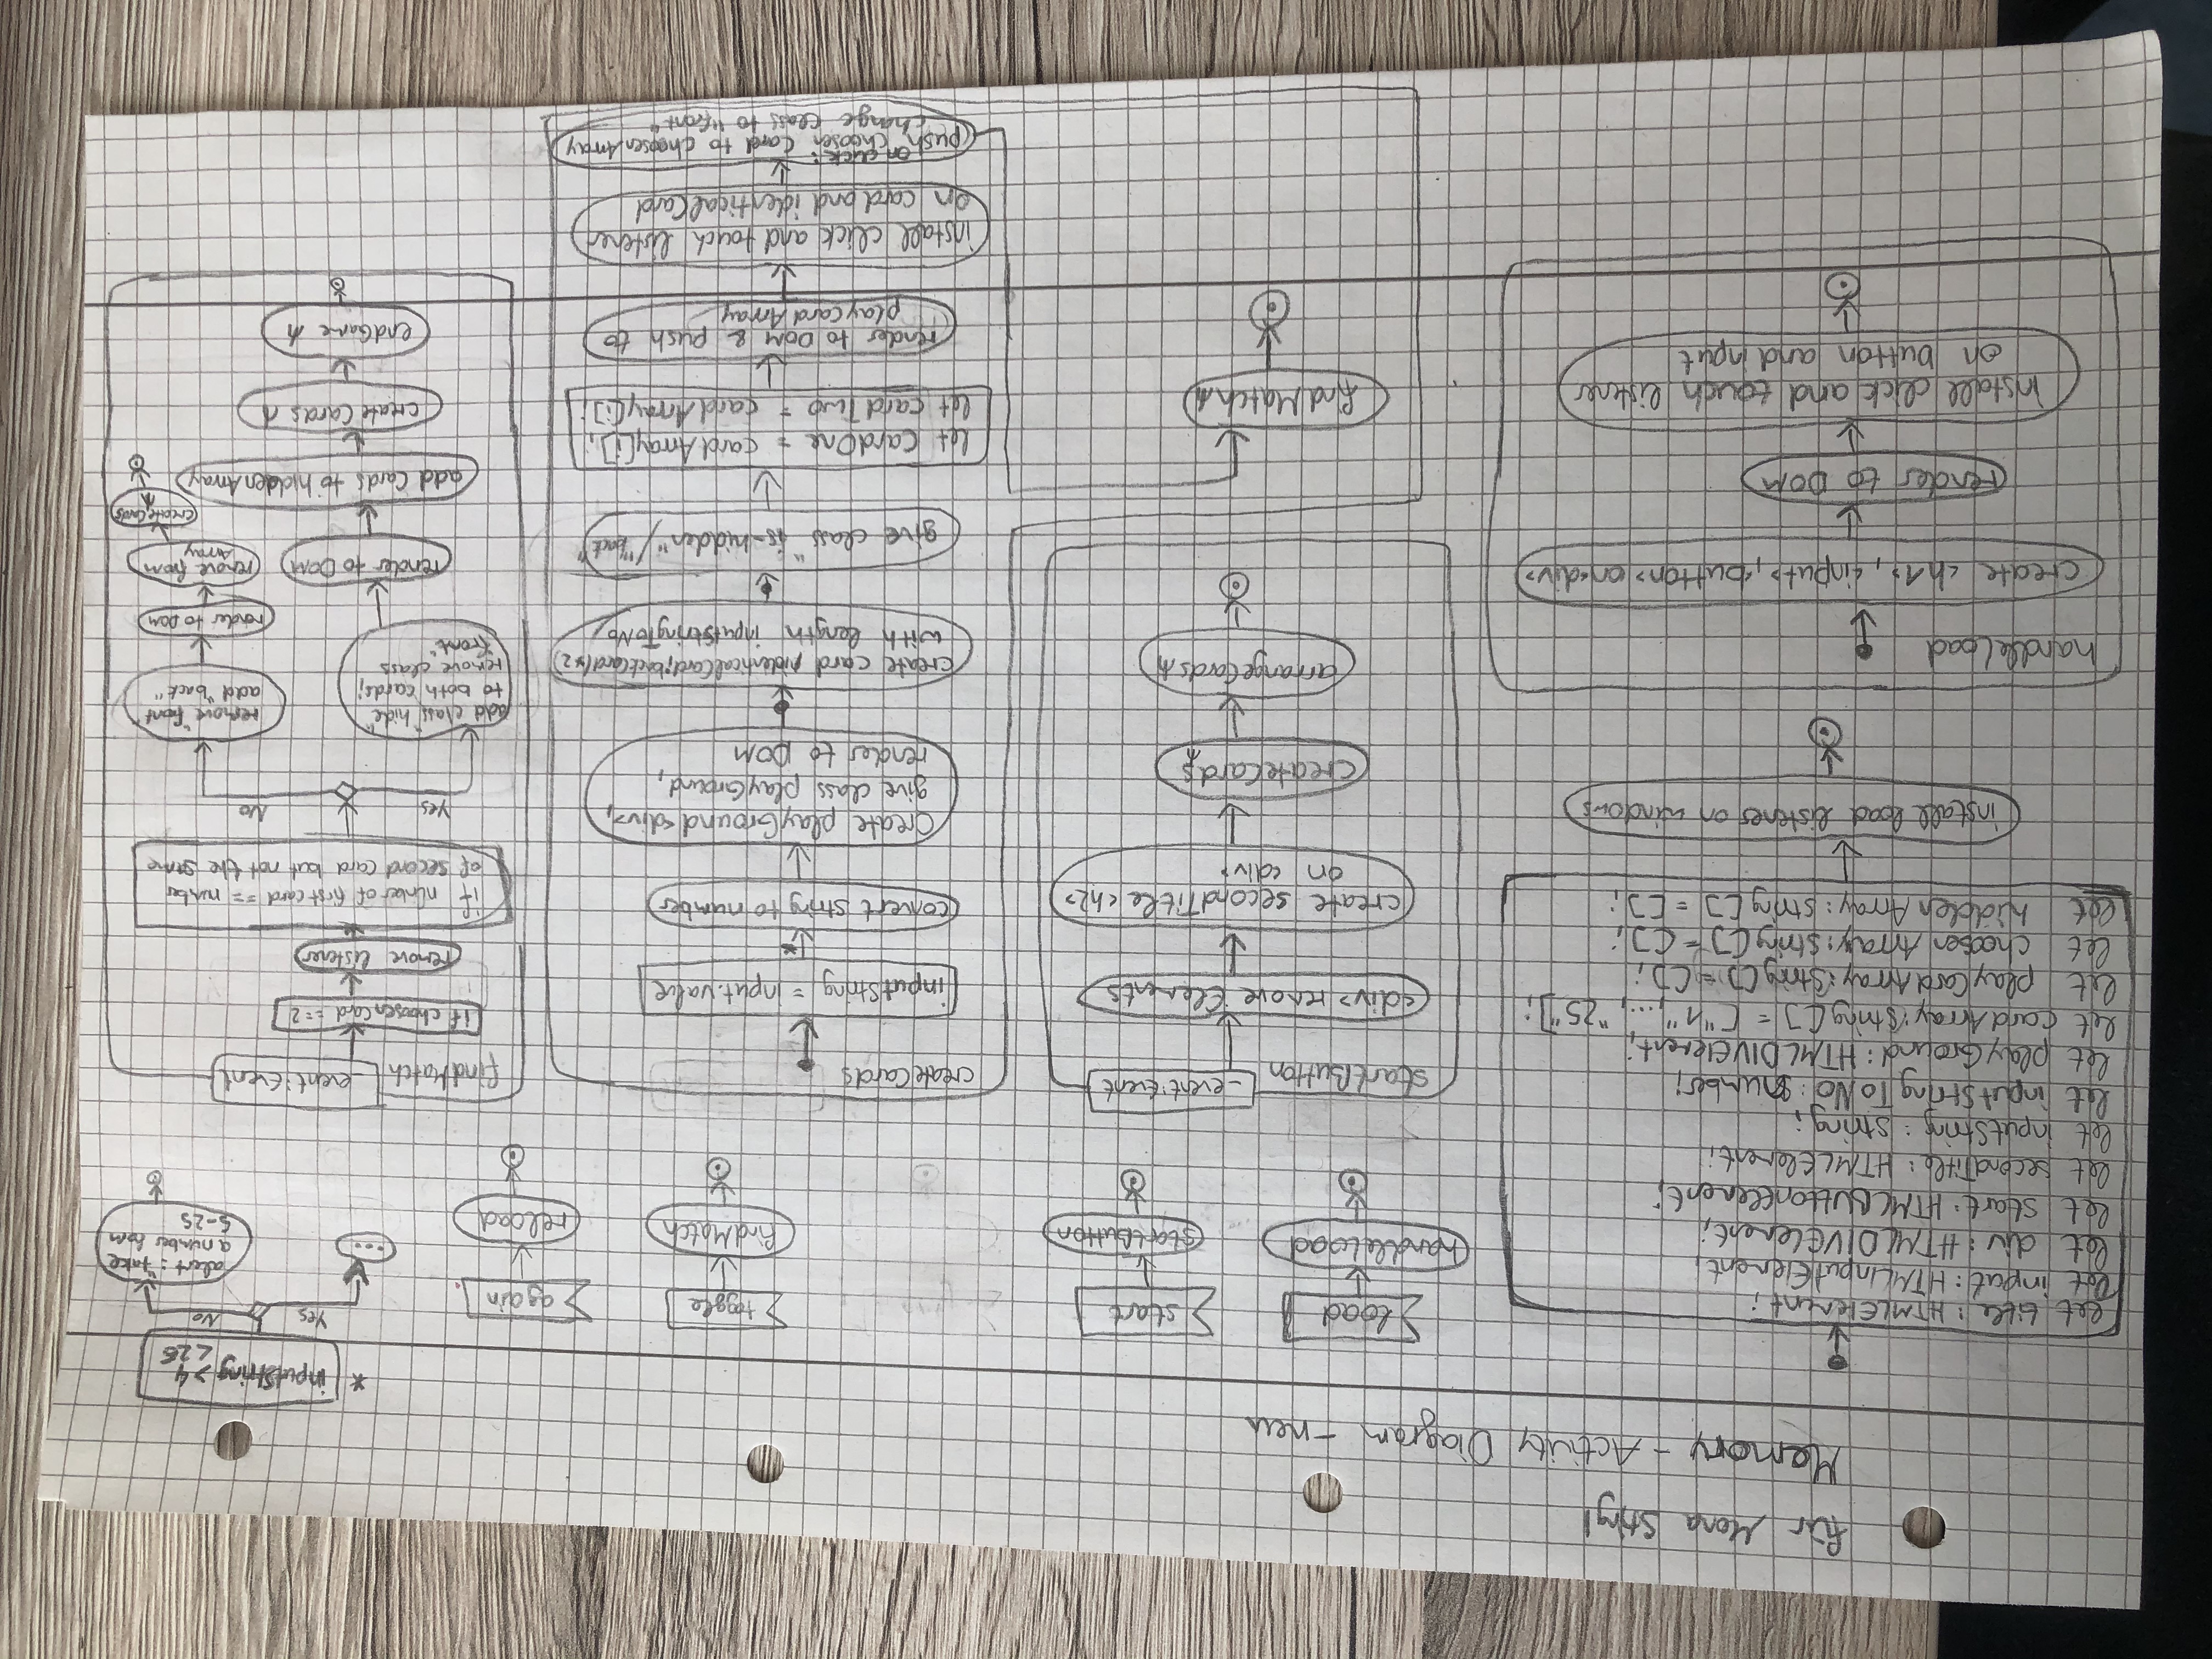 für Mona Stingl
Memory - Activity Diagram - new
let title : HTMLElement;
let input : HTMLInputElement;
let div : HTMLDIVElement;
let start : HTMLButtonElement;
let secondTitle : HTMLElement;
let inputString : String;
let inputStringToNo : number;
let playGround : HTMLDIVElement;
let cardArray : String[] = ["1",...,"25"];
let playCardArray : String[] = [];
let choosenArray : string[] = [];
let hiddenArray : string[] = [];
install load listener on windows
handleload
create <h1>, <input>, <button> on <div>
render to DOM
install click and touch listener
on button and input
load
handleload
start
startbutton
toggle
findMatch
again
reload
* inputString > 4
< 26
Yes
No
...
alert: "take
a number from
5-25
startButton
_event:Event
<div> remove Elements
create secondTitle <h2>
on <div>
createCards
arrangeCards
createCards
inputString = input.value
*
convert string to number
Create playGround <div>,
give class playGround,
render to DOM
create card, identicalCard, backCard (x2)
with length inputStringToNo,
give class "is-hidden"/"back"
let cardOne = cardArray[i];
let cardTwo = cardArray[i];
render to DOM & push to
playCardArray
install click and touch listener
on card and identicalCard
on click:
push choosen Card to choosenArray
change class to "front"
findMatch
findMatch
_event:Event
if choosenCard == 2
remove listener
if number of first card == number
of second card but not the same
Yes
No
add class "hide"
to both cards;
remove class
"front"
render to DOM
add Cards to hiddenArray
createCards
endGame
remove "front"
add "back"
render to DOM
remove from
Array
createCards